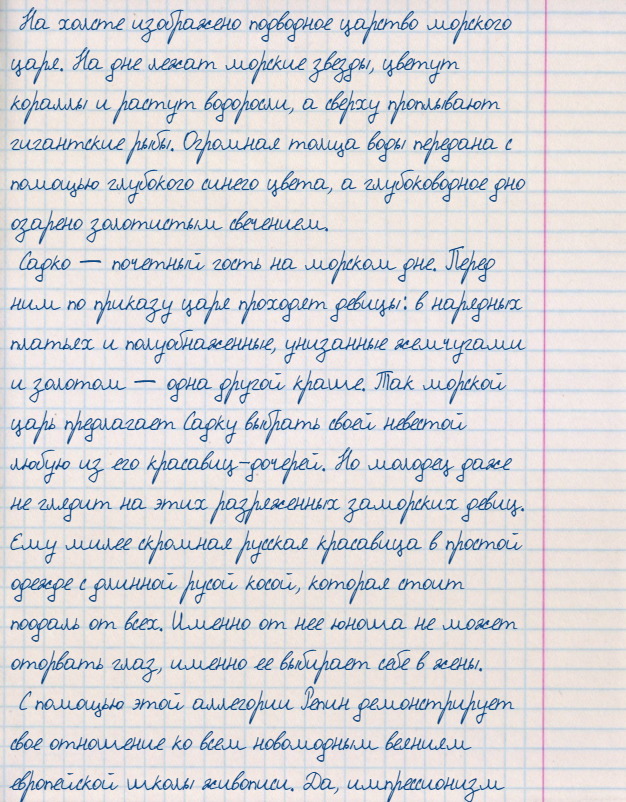 На холсте изображено подводное царство морского
царя. На дне лежат морские звезды, цветут
кораллы и растут водоросли, а сверху проплывают
гигантские рыбы. Огромная толща воды передана с
помощью глубокого синего цвета, а глубоководное дно
озарено золотистым свечением.
Садко — почетный гость на морском дне. Перед
ним по приказу царя проходят девицы: в нарядных
платьях и полуобнаженные, унизанные жемчугами
и золотом — одна другой краше. Так морской
царь предлагает Садку выбрать своей невестой
любую из его красавиц-дочерей. Но молодец даже
не глядит на этих разряженных заморских девиц.
Ему милее скромная русская красавица в простой
одежде с длинной русой косой, которая стоит
поодаль от всех. Именно от нее юноша не может
оторвать глаз, именно ее выбирает себе в жены.
С помощью этой аллегории Репин демонстрирует
свое отношение ко всем новомодным веяниям
европейской школы живописи. Да, импрессионизм